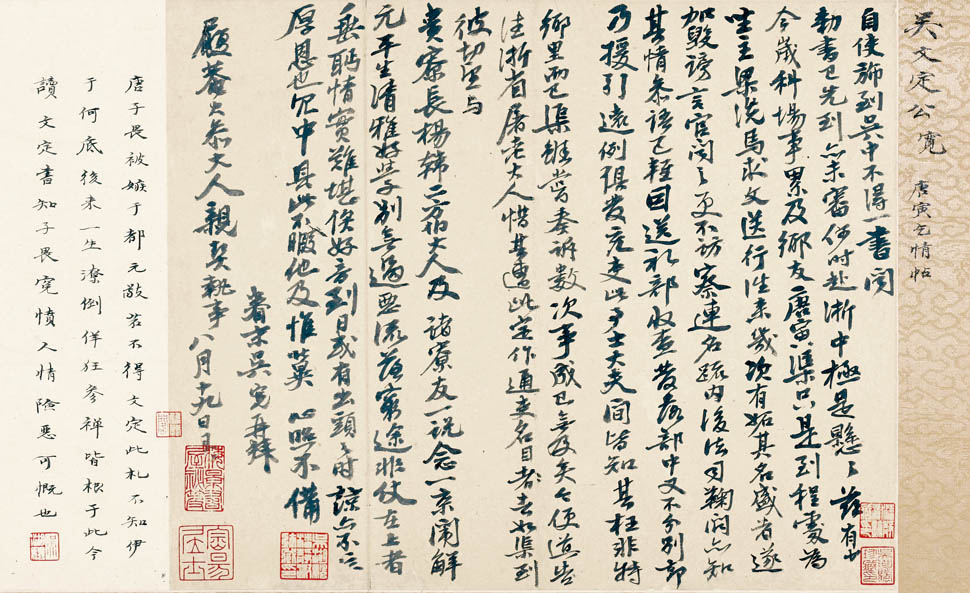 吳文定公寬
唐寅乞情帖
自使斾到吳中不得一書聞
勅書已先到亦未審何時赴浙中極是懸懸茲有
今歲科場事累及鄉友唐寅渠只是到程處為
坐主梁洗馬求文送行往來幾次有妬其名盛者遂
加毀謗言官聞之更不訪察連名疏內後法司鞫問亦知
其情參語已輕因送禮部收查發落部中又不分別卻
乃援引遠例俱發充吏此事士大夫間皆知其枉非特
鄉里而已渠雖嘗奏訴數次事成已無及矣今便道告
往浙省屠老大人惜其遭此定作通吏名目者去如渠到
彼切望與
貴寮長楊韓二方伯大人及諸寮友一說念一京闈解
元平生清雅好學別無過惡流落窮途非仗在上者
垂眄情實難堪俟好音到日或有出頭之時諒亦不忘
厚恩也冗中具此不暇他及惟冀心照不備
眷末吳寬再拜
履菴大參大人親契執事 八月十九日
唐子畏被嫉于都元敵若不得文定此札不知伊
于何底後來一生潦倒佯狂參禪皆根于此今
讀文定書知子畏寃憤人情險惡可慨也